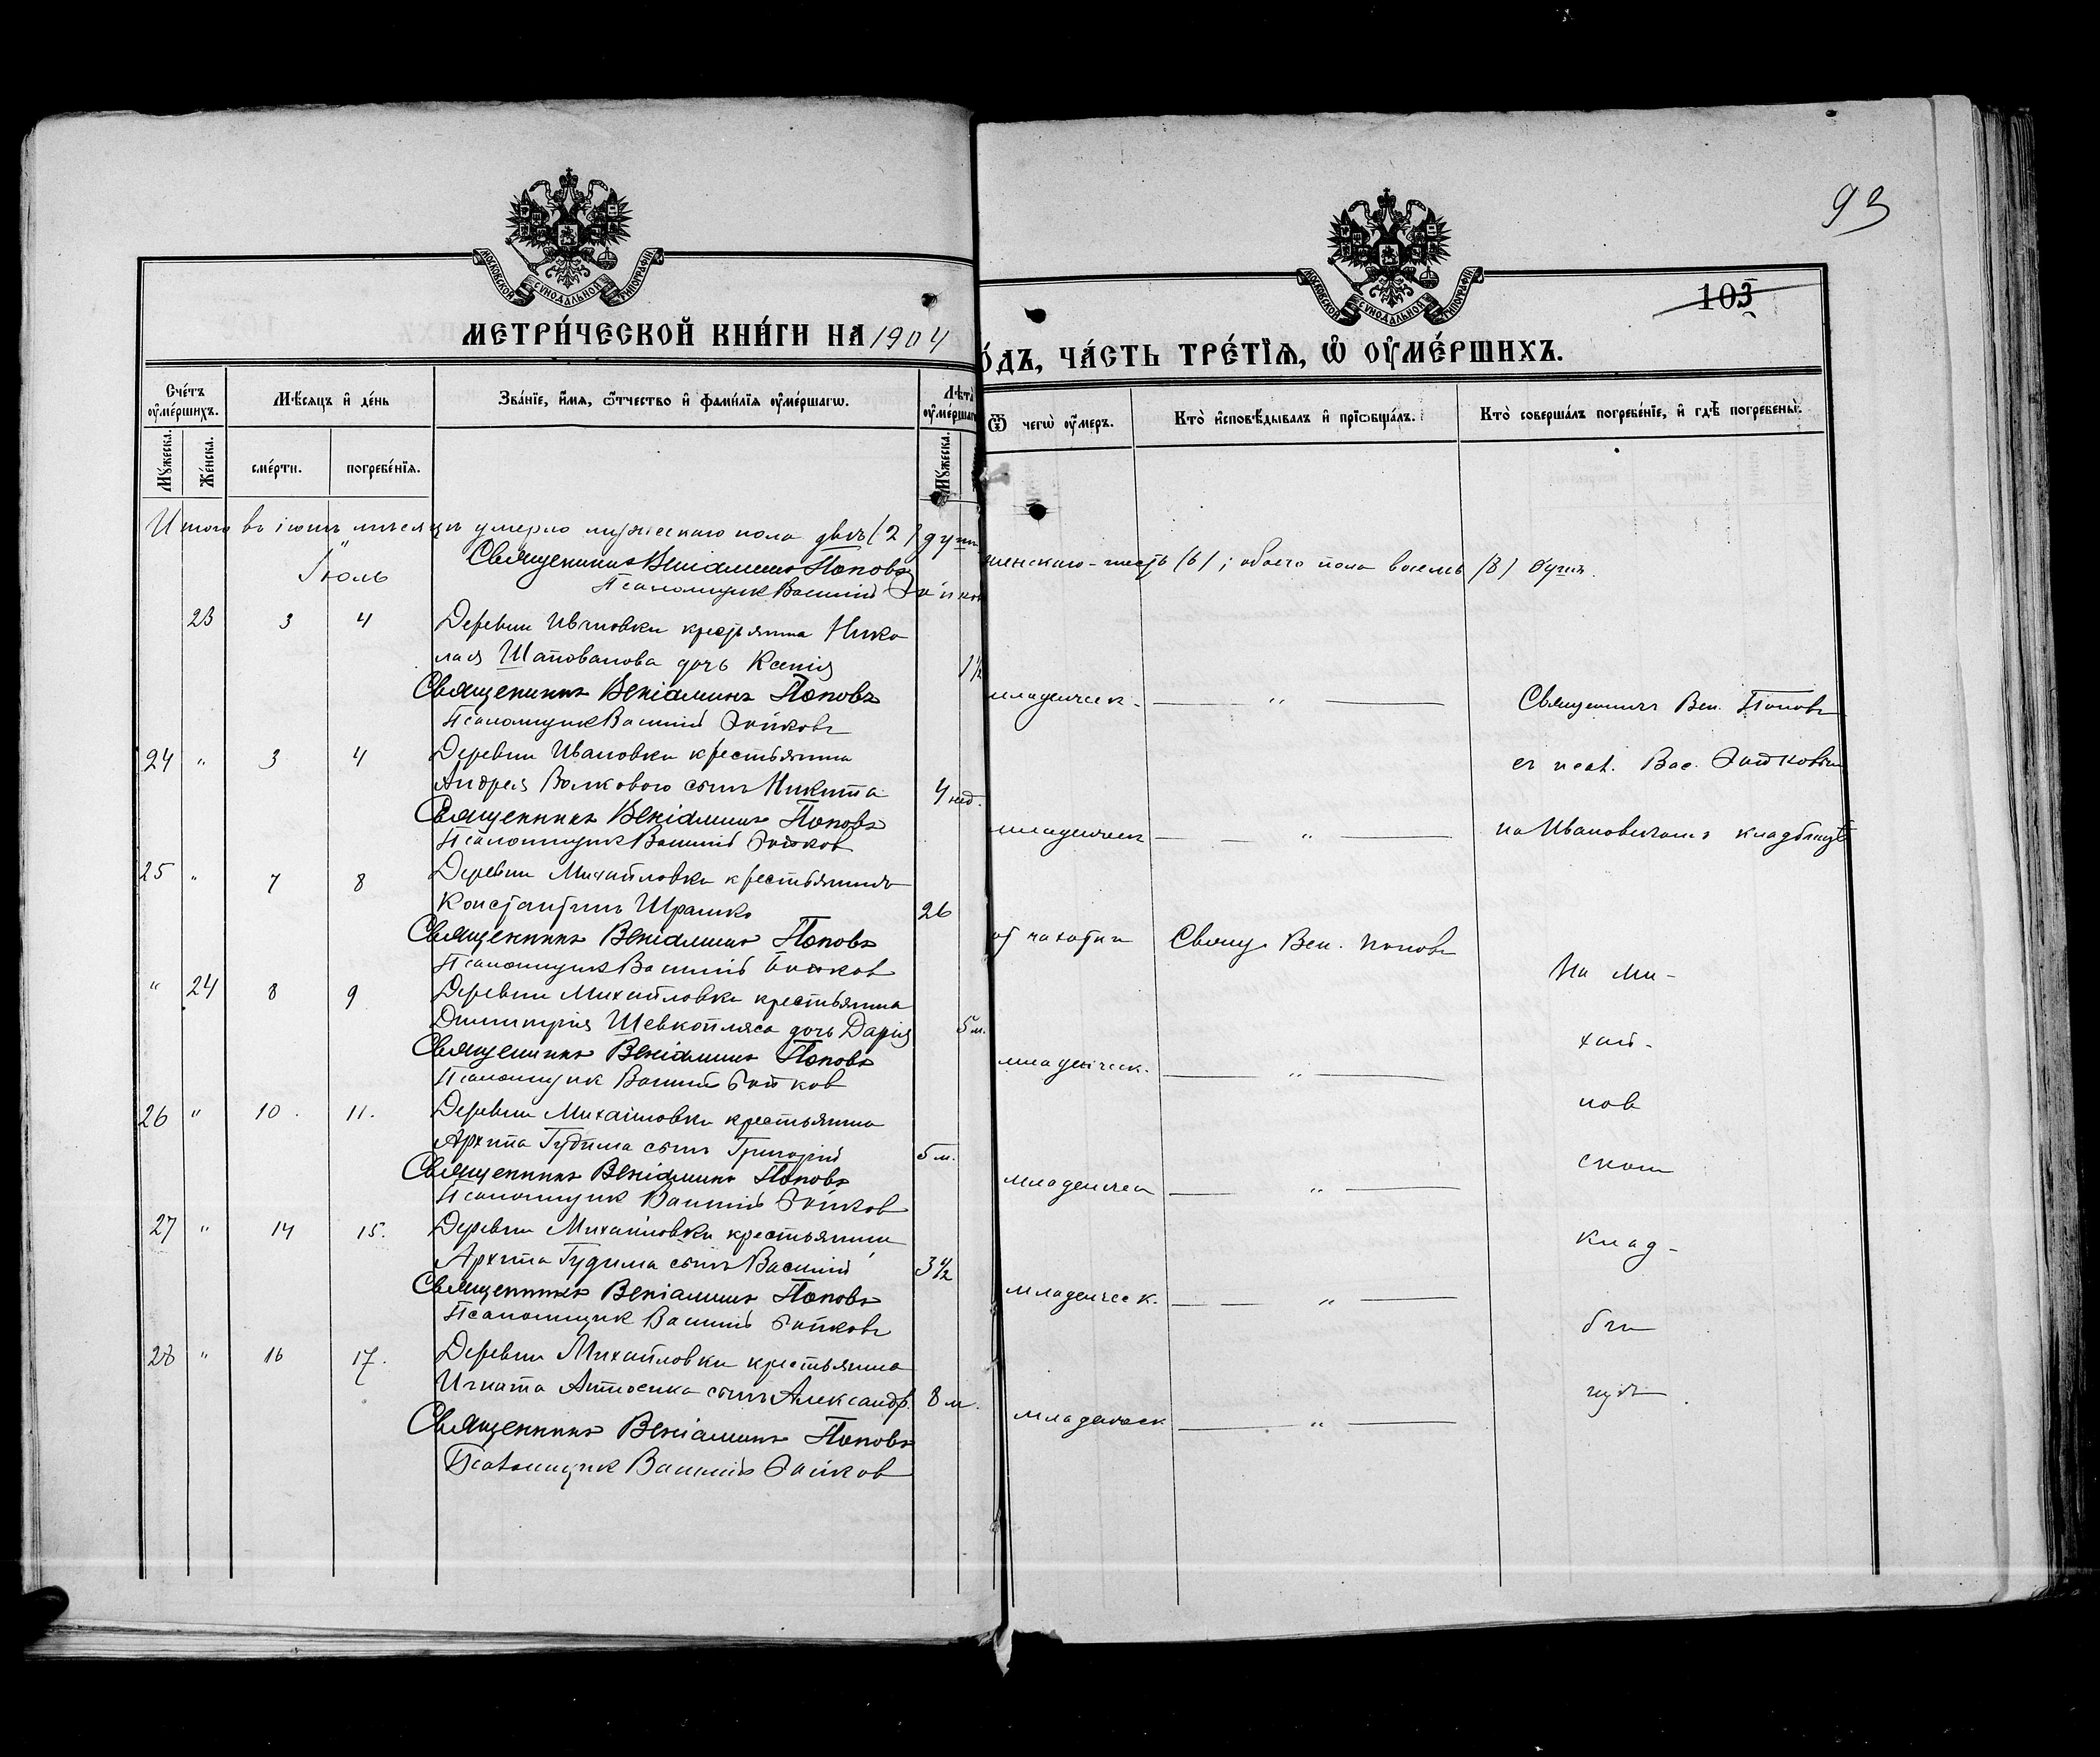 93
103
МОСКОВСКОЙ СѴНОДАЛЬНОЙ ТИПОГРАФІИ
МОСКОВСКОЙ СѴНОДАЛЬНОЙ ТИПОГРАФІИ
МЕТРИ́ЧЕСКОЙ КНИ́ГИ НА 1904
О́ДЪ, ЧА́СТЬ ТРЕ́ТЇѦ, Ѡ҆ ОУ҆МЕ́РШИХЪ.
Сче́тъ оу҆ме́ршихъ.
Мꙋ́жеска.
Же́нска.
Мѣ́сяцъ и҆ де́нь
сме́рти.
погребе́нїѧ.
Зва́нїе, и҆́мѧ, ѻ҆́тчество и҆ фами́лїѧ оу҆ме́ршагѡ.
Лѣта̀ оу҆ме́ршаг
Мꙋ́жеска.
Ѿ чегѡ̀ оу҆́меръ.
Кто̀ и҆сповѣ́дывалъ и҆ прїѡбща́лъ.
Кто̀ соверша́лъ погребе́нїе, и҆ гдѣ̀ погребены̀.
Итого въ іюнѣ мѣсяцѣ умерло мужескаго пола двѣ (2) души
женскаго - шесть (6); обоего пола восемь (8) душъ.
Іюль
Священникъ Веніаминъ Поповъ
Псаломщикъ Василій
23 3 4 Деревни Ивановки крестьянина Нико
лая Шаповалова дочь Ксенія 1½
Священникъ Веніаминъ Поповъ
Псаломщикъ Василій
младенческ. " Священникъ Вен. Поповъ
24 " 3 4 Деревни Ивановки крестьянина
Андрея Волкового сынъ Никита 4 нед.
Священникъ Веніаминъ Поповъ
Псаломщикъ Василій
съ псал. Вас.
младенческ " на Ивановскомъ кладбищѣ
25 " 7 8 Деревни Михайловки крестьянинъ
Константинъ Шрамко 26
Священникъ Веніаминъ Поповъ
Псаломщикъ Василій
от чахотки Свящ. Вен. Поповъ
На Ми-
" 24 8 9 Деревни Михайловки крестьянина
Димитрія Шевкопляса дочь Дарія 5 м.
Священникъ Веніаминъ Поповъ
Псаломщик Василій
младенческ. "
хай-
26 " 10. 11. Деревни Михайловки крестьянина
Архипа Гудима сынъ Григорій 5 м.
Священникъ Веніаминъ Поповъ
Псаломщик Василій
младенчес "
лов
ском
27 " 14 15. Деревни Михайловки крестьянина
Архипа Гудима сынъ Василій 3½
Священникъ Веніаминъ Поповъ
Псаломщик Василій
младенческ. "
клад-
би
28 " 16 17. Деревни Михайловки крестьянина
Игната сынъ Александр. 8 м.
Священникъ Веніаминъ Поповъ
Псаломщик Василій
младенческ "
щѣ